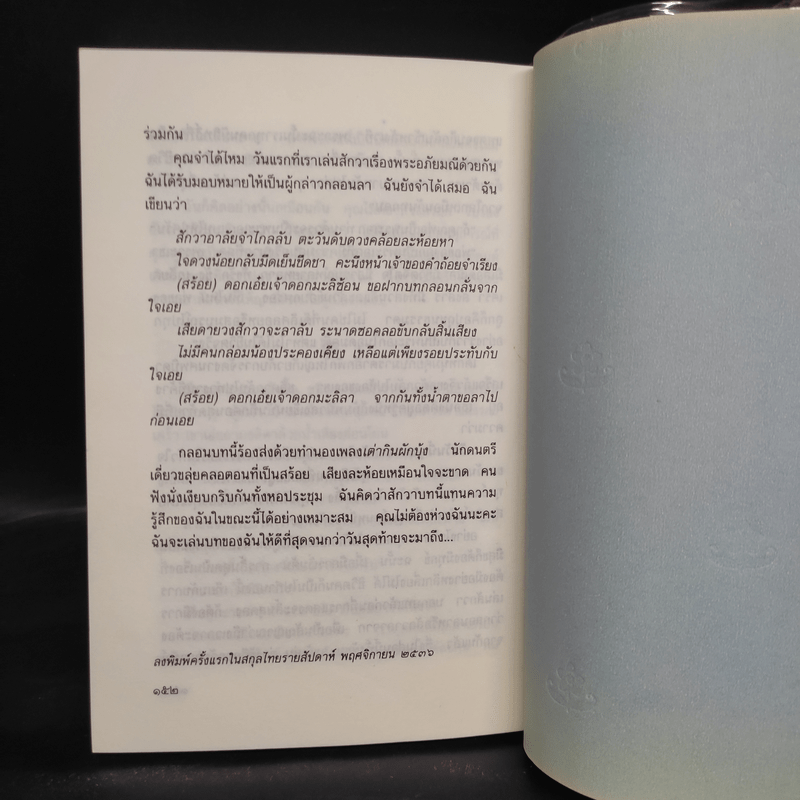 ร่วมกัน
คุณจำได้ไหม วันแรกที่เราเล่นสักวาเรื่องพระอภัยมณีด้วยกัน
ฉันได้รับมอบหมายให้เป็นผู้กล่าวกลอนลา ฉันยังจำได้เสมอ ฉัน
เขียนว่า
สักวาอาลัยจำไกลลับ ตะวันดับดวงคล้อยละห้อยหา
ใจดวงน้อยกลับมืดเย็นชืดชา คะนึงหน้าเจ้าของคำถ้อยจำเรียง
(สร้อย) ดอกเอ๋ยเจ้าดอกมะลิซ้อน ขอฝากบทกลอนกลั่นจาก
ใจเอย
เสียดายวงสักวาจะลาลับ ระนาดซอคลอขับกลับสิ้นเสียง
ไม่มีคนกล่อมน้องประคองเคียง เหลือแต่เพียงรอยประทับกับ
ใจเอย
(สร้อย) ดอกเอ๋ยเจ้าดอกมะลิลา จากกันทั้งน้ำตาขอลาไป
ก่อนเอย
กลอนบทนี้ร้องส่งด้วยทำนองเพลงเต่ากินผักบุ้ง นักดนตรี
เดี่ยวขลุ่ยคลอตอนที่เป็นสร้อย เสียงละห้อยเหมือนใจจะขาด คน
ฟังนั่งเงียบกริบกันทั้งหอประชุม ฉันคิดว่าสักวาบทนี้แทนความ
รู้สึกของฉันในขณะนี้ได้อย่างเหมาะสม คุณไม่ต้องห่วงฉันนะคะ
ฉันจะเล่นบทของฉันให้ดีที่สุดจนกว่าวันสุดท้ายจะมาถึง...
ลงพิมพ์ครั้งแรกในสกุลไทยรายสัปดาห์ พฤศจิกายน ๒๕๓๖
๑๕๒